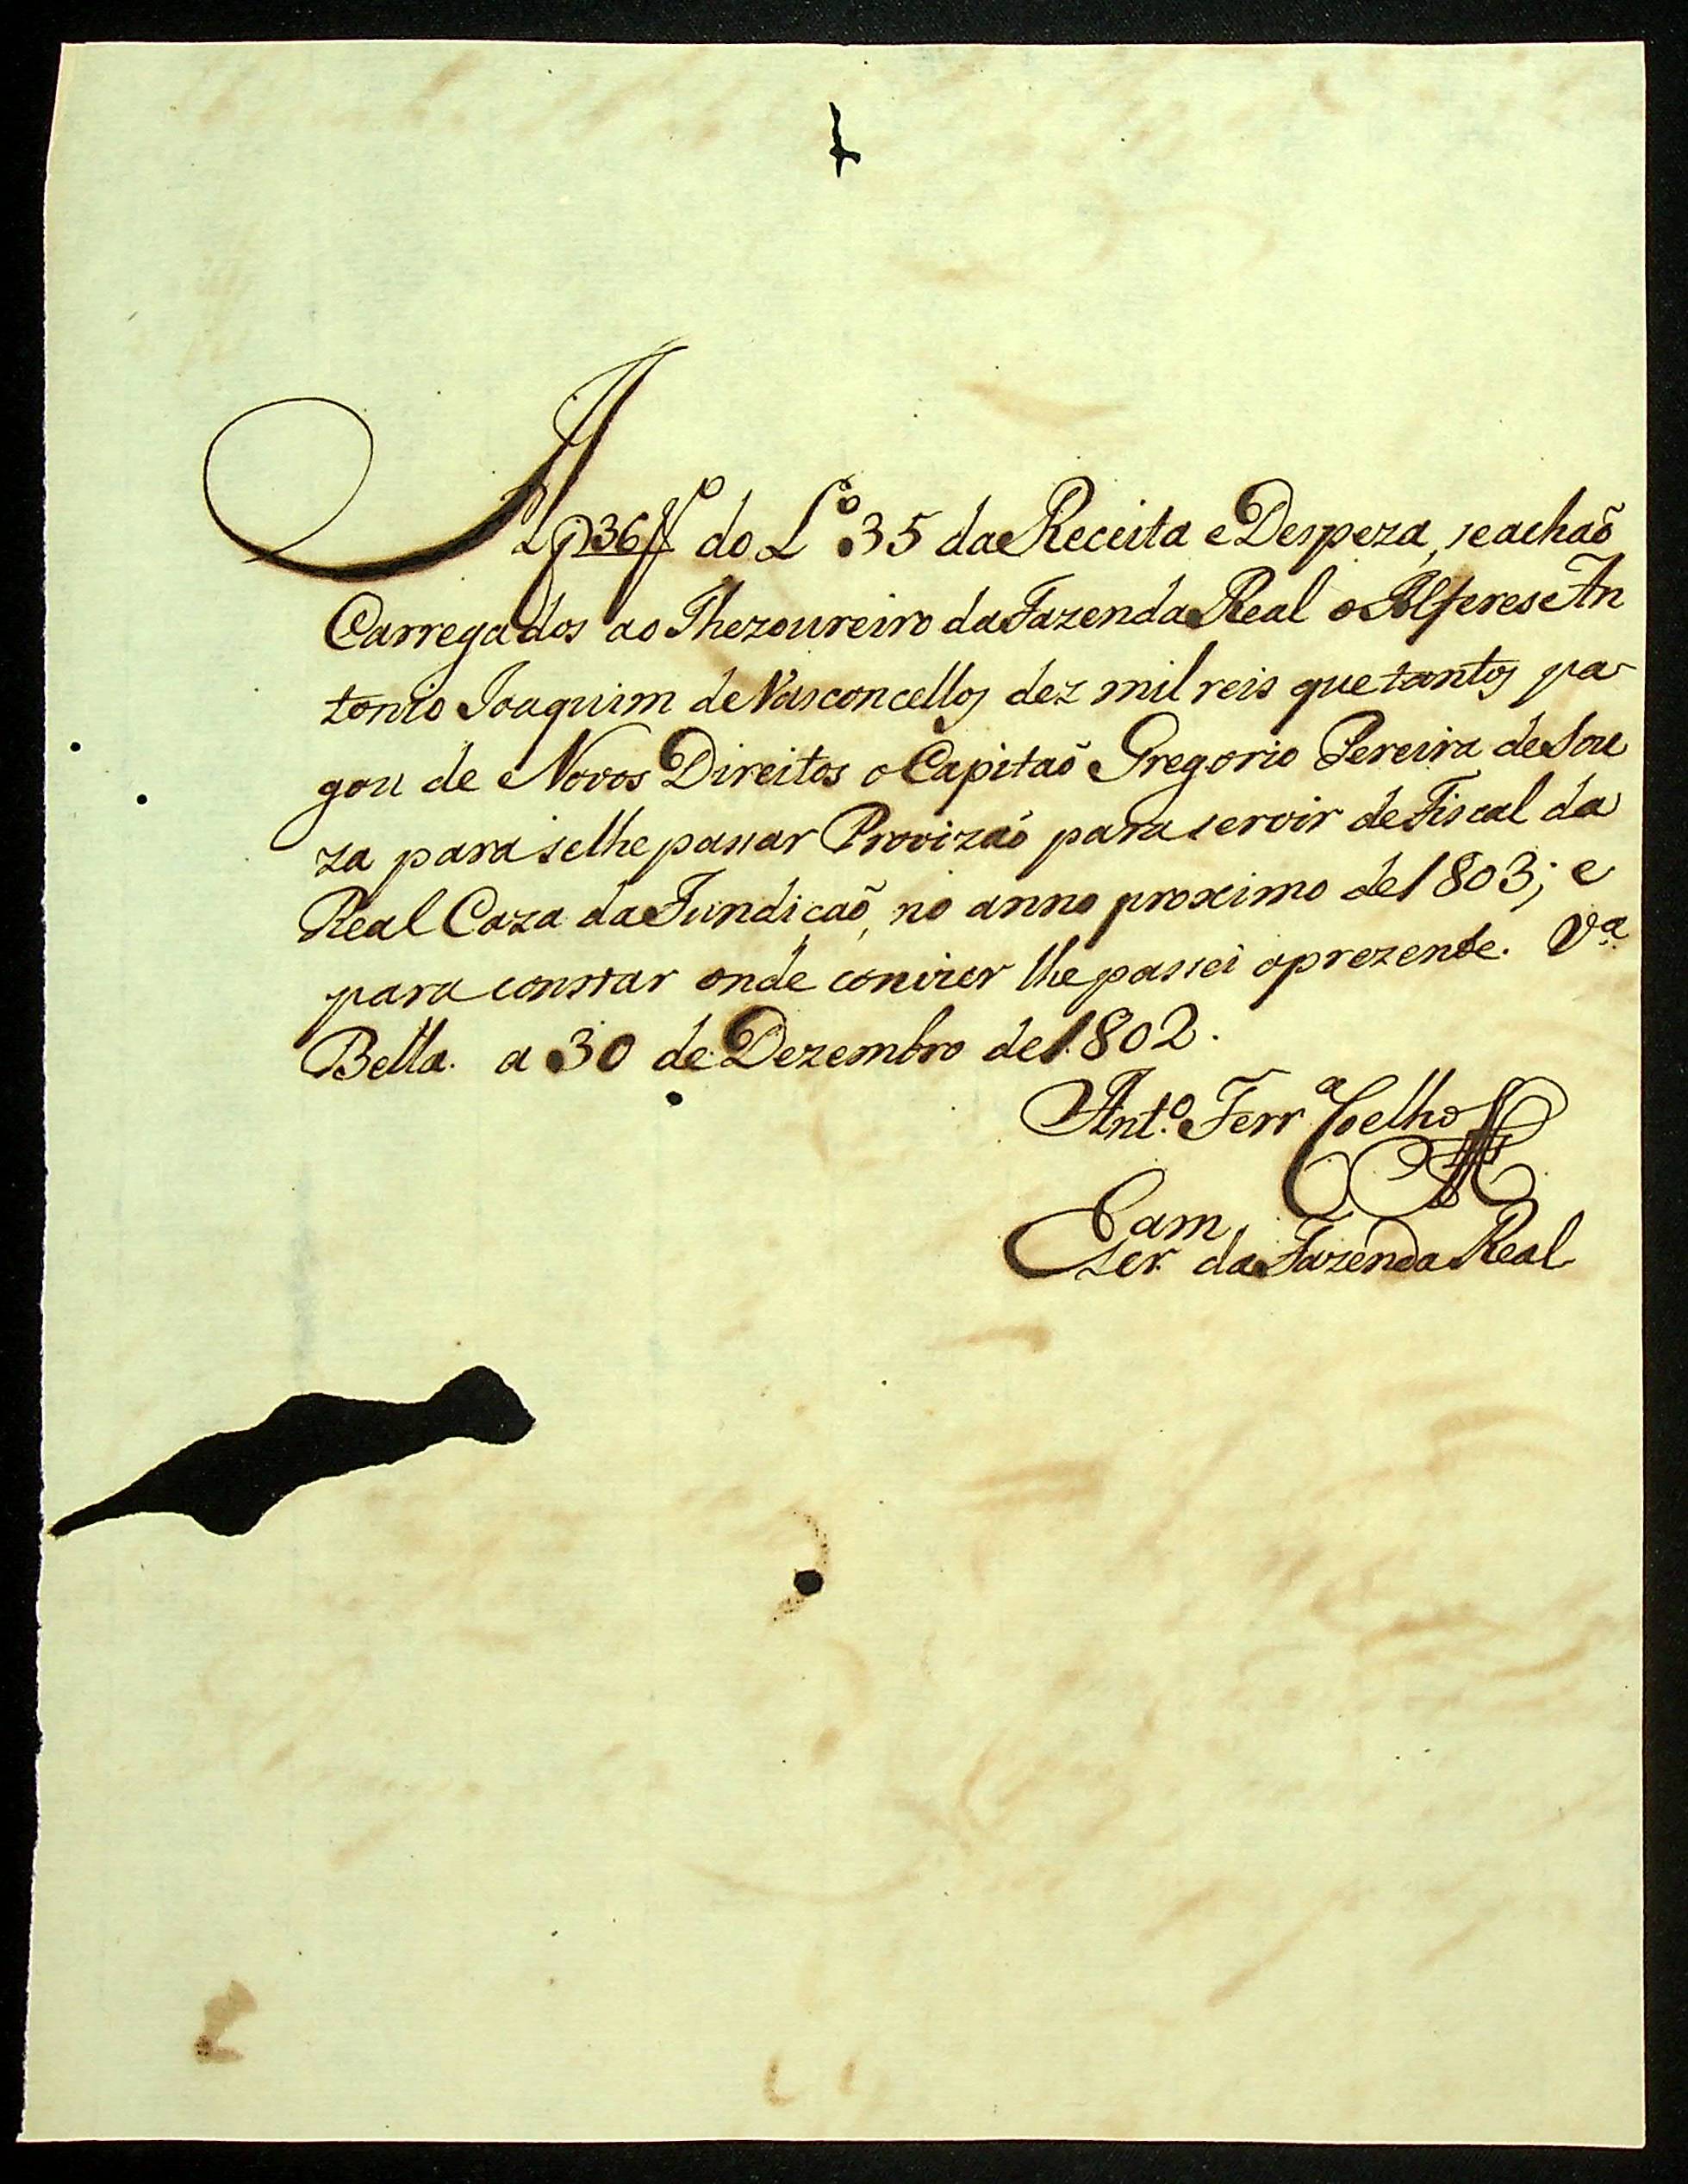 A f 36 vº do Lº 35 da Receita e Despeza, se achaõ
Carregados ao Thezoureiro da Fazenda Real o Alferes An
tonio Joaquim de Vasconcellos dez mil reis que tantos pa
gou de Novos Direitos o Capitaõ Gregorio Pereira de Sou
za para se lhe passar Provizaõ para servir de Fiscal da
Real Caza da Fundiçaõ, no anno proximo de 1803; e
para constar onde convier lhe passei a prezente. Vª
Bella. a 30 de Dezembro de 1802.
Antº. Ferrª Coelho
Cam
Ser. da Fazenda Real